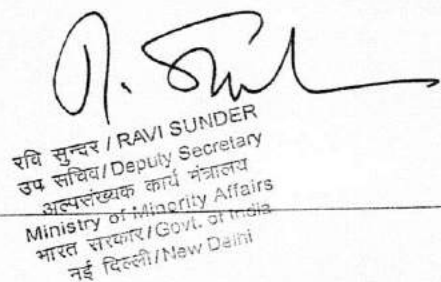 रवि सुन्दर / RAVI SUNDER
उप सचिव/Deputy Secretary
अल्पसंख्यक कार्य मंत्रालय
Ministry of Minority Affairs
भारत सरकार/Govt. of India
नई दिल्ली/New Delhi